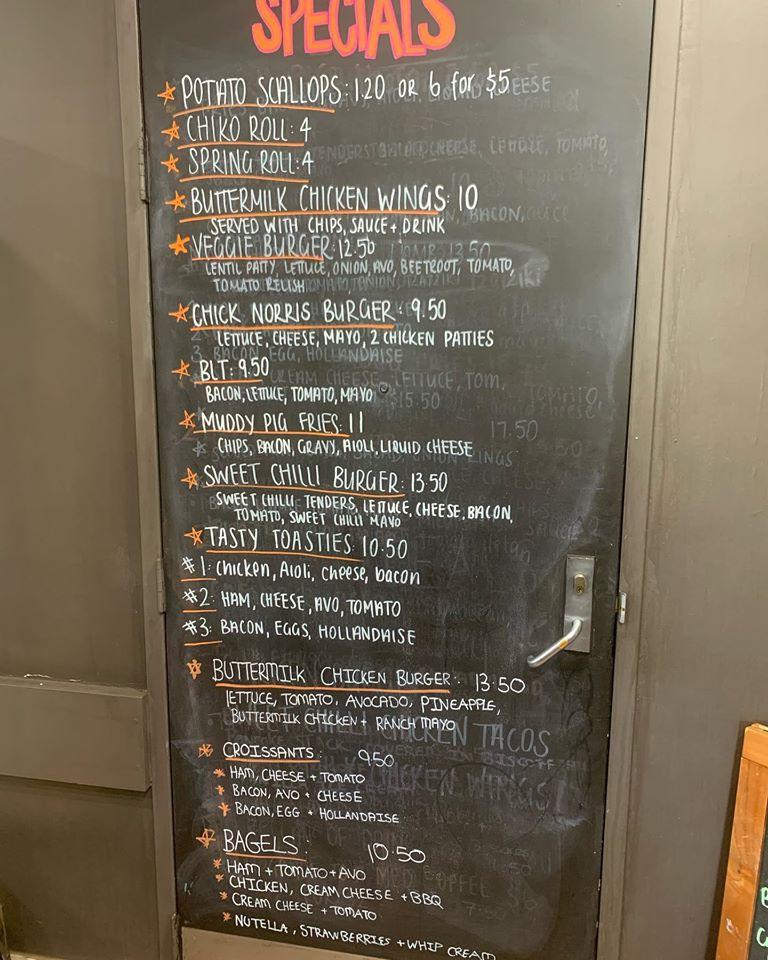 SPECIALS
POTATO SCALLOPS: 1.20 OR 6 for $5
CHIKO ROLL: 4
SPRING ROLL: 4
BUTTERMILK CHICKEN WINGS: 10
SERVED WITH CHIPS, SAUCE + DRINK
VEGGIE BURGER: 12.50
LENTIL PATTY, LETTUCE, ONION, AVO, BEETROOT, TOMATO,
TOMATO RELISH
CHICK NORRIS BURGER: 9.50
LETTUCE, CHEESE, MAYO, 2 CHICKEN PATTIES
BLT: 9.50
BACON, LETTUCE, TOMATO, MAYO
MUDDY PIG FRIES: 11
CHIPS, BACON, GRAVY, AIOLI, LIQUID CHEESE
SWEET CHILLI BURGER: 13.50
SWEET CHILLI TENDERS, LETTUCE, CHEESE, BACON,
TOMATO, SWEET CHILLI MAYO
TASTY TOASTIES: 10.50
#1: chicken, Aioli, cheese, bacon
#2: HAM, CHEESE, AVO, TOMATO
#3: BACON, EGGS, HOLLANDAISE
BUTTERMILK CHICKEN BURGER: 13.50
LETTUCE, TOMATO, AVOCADO, PINEAPPLE,
BUTTERMILK CHICKEN + RANCH MAYO
CROISSANTS: 9.50
HAM, CHEESE + TOMATO
BACON, AVO + CHEESE
BACON, EGG + HOLLANDAISE
BAGELS: 10.50
HAM + TOMATO + AVO
CHICKEN, CREAM CHEESE + BBQ
CREAM CHEESE + TOMATO
NUTELLA, STRAWBERRIES + WHIP CREAM